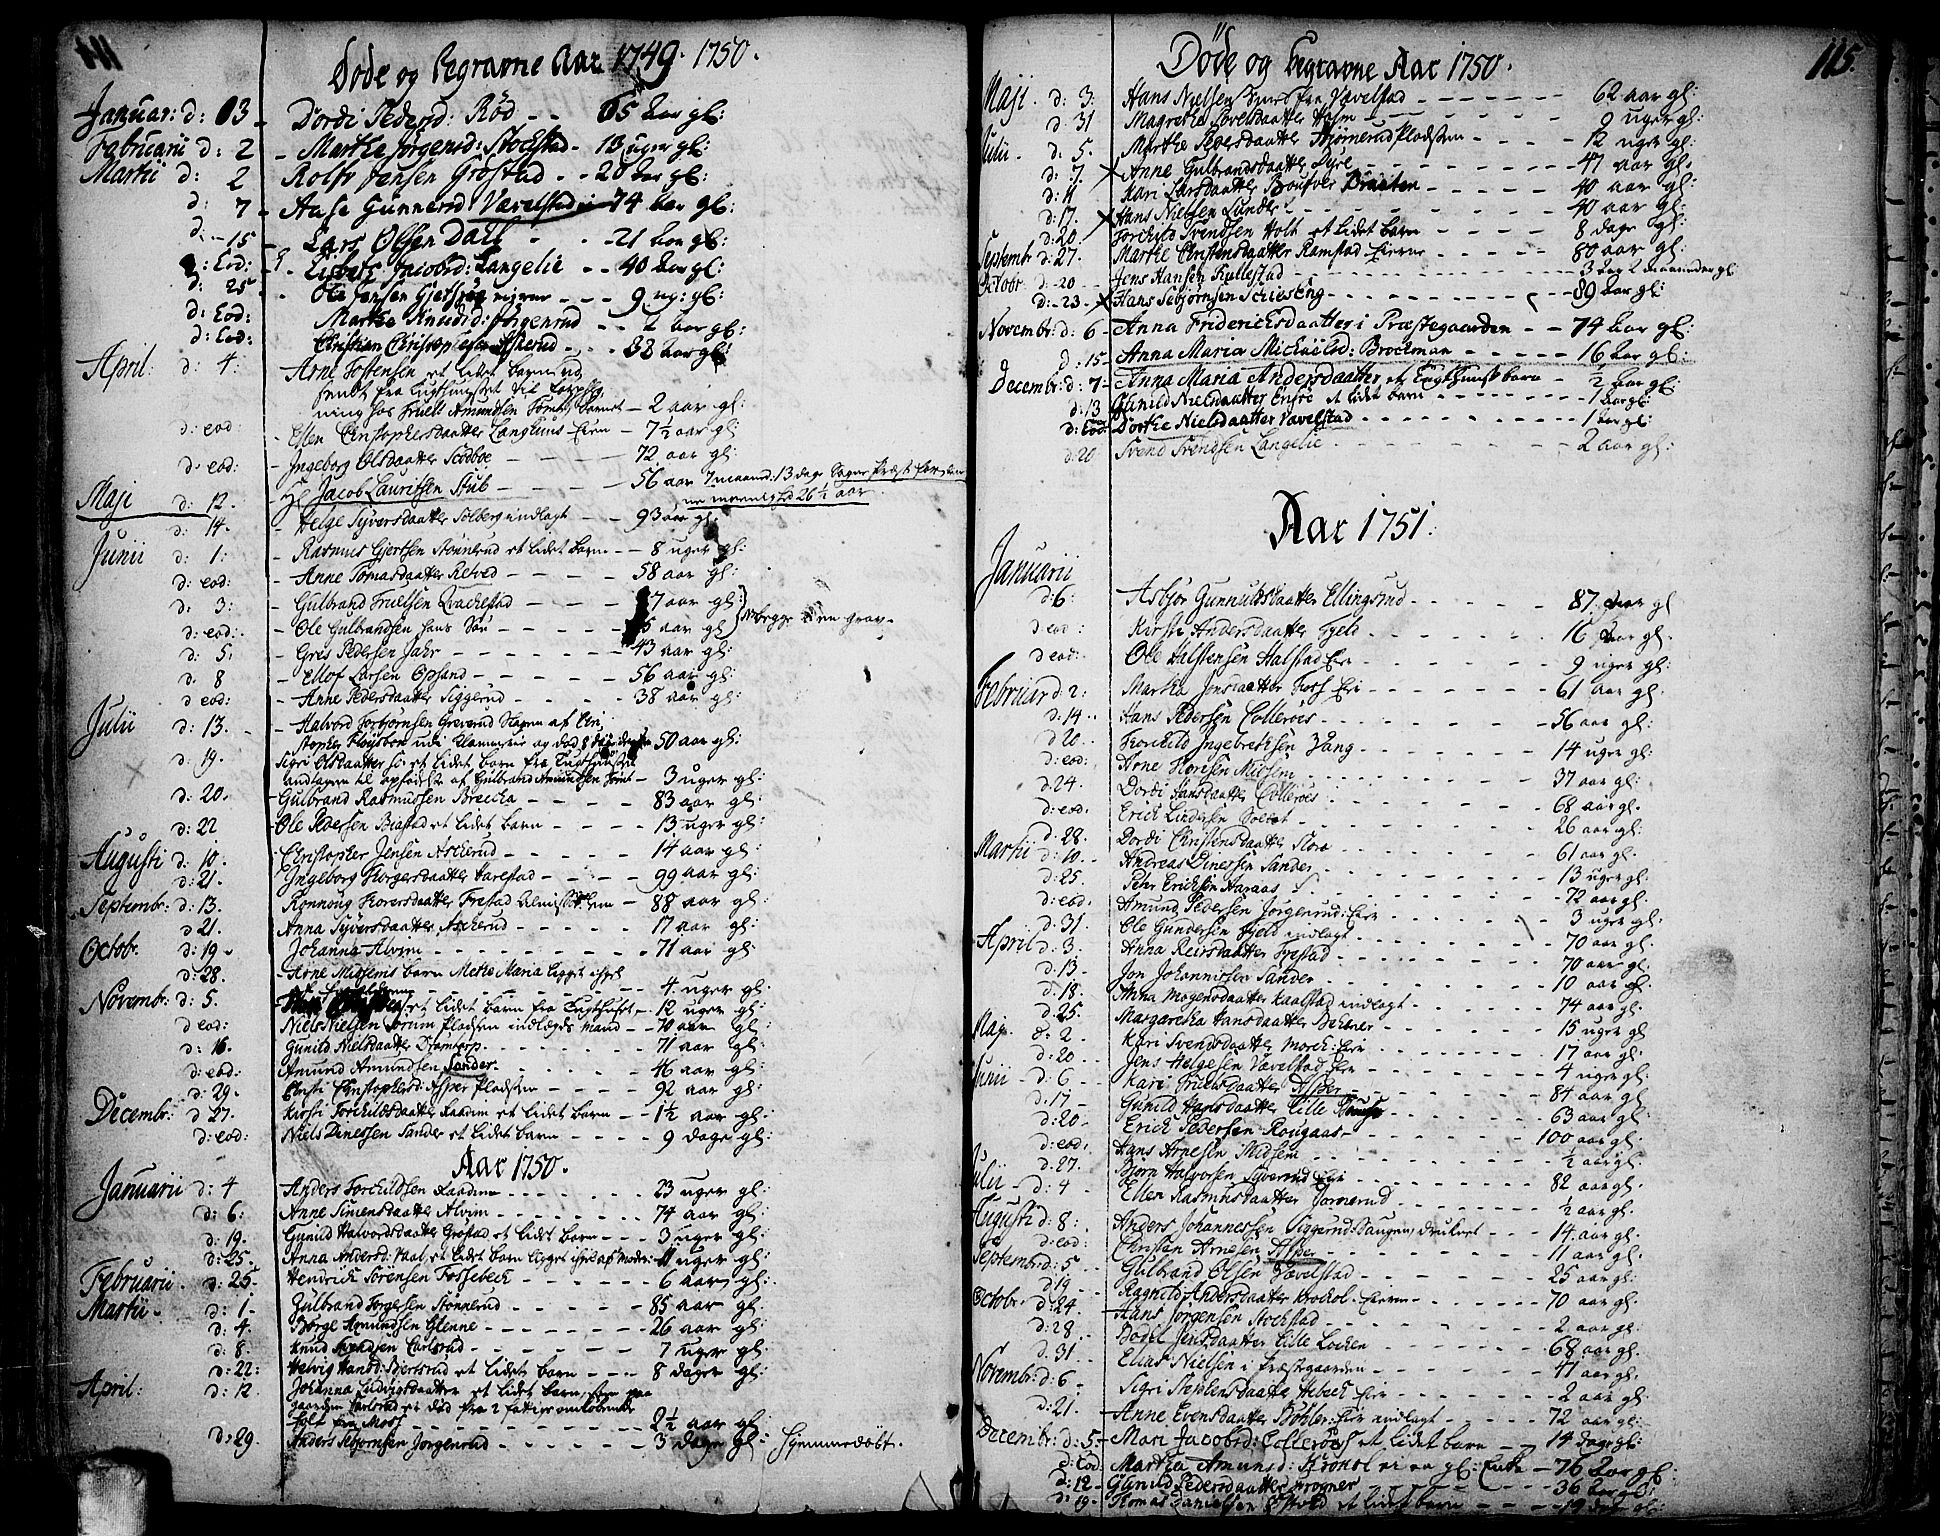 Døde og begravne Aar 1749. 1750.
Januar: d: 03 - Dordi Pedersd: Rød - - 65 Aar gl:
Februarii d: 2 - Marthe Jørgensd: Stockstad - 13 uger gl:
Martii d: 2 Rolfv Jensen Grøstad - - 20 Aar gl:
d: 7 - Aase Gunnersd Vevelstad - 74 Aar gl:
d: 15 - Lars Olsen Dall - - 21 Aar gl:
d: Eod: Lisbeth Jacobsd: Langelie - - 40 Aar gl:
d: 25 - Ole Jensen - - - 9 ug: gl:
d: Eod: Marthe Knudsd: Jørgenrud - - Aar gl:
d: Eod: Christian Christophersen Askerud - - - 32 Aar gl:
April: d: 4: Arne Tostensen et lidet barn ud
sendt fra Tugthuuset til
ning hos Truell Amundsen - 2 aar gl:
d: eod: - Ellen Christophersdaatter Langhuus - 7½ aar gl:
d: eod: - Ingeborg Olsdaatter Scodboe - - - 72 aar gl:
Maji d: 12. Jacob Lauritsen Stub - - - 56 aar 7 maaned: 13 dage Sogne Præst
26½ aar.
d: 14. - Helge Syversdaatter Solberg indlagt - - 93 aar gl:
Junii d: 1: - Rasmus Gjertsen Stønnerud et lidet barn - - 8 uger gl:
d: eod: - Anne Tomasdaatter Retved - - - - 58 aar gl:
d: 3: - Gulbrand Truelsen Qvachestad - - - 7 aar gl:
d: eod: - Ole Gulbrandsen hans Søn - - - - aar gl: begge i en grav.
d: 5: - Gres Pedersen Jahr - - - - 43 aar gl:
d: 8 - Ellof Larsen Opsand - - - - 56 aar gl:
d eod: - Anne Pedersdaatter Siggerud - - - 38 aar gl:
Julii d: 13. - Halvord Torbjørnsen Greverud Slagen af
- 50 aar gl:
d: 19. Sigri Olsdaatter et lidet barn fra Tugthuuset
antagen til opfødsel af Gulbrand Amundsen - 3 uger gl:
d: 20. - Gulbrand Rasmussen Brecka - - - - 83 aar gl:
d: 22 - Ole Pedersen Biastad et lidet barn - - - 13 uger gl:
Augusti d: 10. - Christopher Jensen Askerud - - - - 14 aar gl:
d: 21. - Ingeborg Torgersdaatter Harestad - - - 99 aar gl:
Septembr: d: 13. - Ronnoug Torersdaatter Frestad Almisse Lem - 88 aar gl:
d 21. Anna Syversdaatter Askerud - - - 17 aar gl:
Octobr. d: 19 - Johanna Alvim - - - - 71 aar gl:
d: 28. - Arne Midsems barn Mette Maria ligget ihjel
- - - - 4 uger gl:
Novembr: d: 5. et lidet barn fra Tugthuset - 12 uger gl:
d eod: Niels Nielsen Sørum Pladsen indlegds mand - 70 aar gl:
d: 16. Gunild Nielsdaatter Dramtorp - - - - 71 aar gl:
d: eod: Amund Amundsen Sander - - - - 46 aar gl:
d: 29. Christi Christophersd: Asper Pladsen - - - 92 aar gl:
Decembr: d 27. Kirsti Torchildsdaatter Raadim et lidet barn - - 1½ aar gl:
d: eod: Niels Dinessen Sander et lidet barn - - - - 9 dage gl:
Aar 1750.
Januarii d: 4 Anders Torchildsen Raadim - - - - 23 uger gl:
d: 6: Anne Simensdaatter Alvim - - - - 74 aar gl:
d: 19. Gunild Halvordsdaatter Grøstad et lidet barn - - 3 uger gl:
d: 25. Anna Andersd: Vaal et lidet barn ligget ihjel af moder: - 11 uger gl:
Februarii d: 25. Hendrick Sørensen Fossebeck - - - - 6 aar gl:
Martii - d: 1 - Gulbrand Torgersen Stønnerud - - - 85 aar gl:
d: 4. Børge Amundsen Glenne - - - - 26 aar gl:
d: 8 Knud Svendsen Carlsrud - - - - 7 uger gl:
d: 22: Helvig Hansd: Bjerkrud et lidet barn - - - 8 dage gl:
April: d: 12 Johanna Ludvigsdaatter et lidet barn
gaarden Carlsrud er død fra 2 fattige omløbende
folk fra Moss - - - - 2½ aar gl:
d: 29. Anders Tebjørnsen Jørgenrud - - - - 3 dage gl: hjemmedøbt.
Døde og begravne Aar 1750.
115.
Maji. d: 3. Hans Nielsen fra Vevelstad - - - - 62 aar gl:
d: 31 Magrethe Povelsdaatter Holm - - - - 9 uger gl:
Julii. d: 5. Marthe Pedersdaatter Stømnerud Pladsen - - - 12 uger gl:
d: 7. Anne Gulbrandsdaatter Dyre - - - - 47 aar gl:
d: 11 Kari Larsdaatter Boufver Braaten - - - - 40 aar gl:
d: 17. Hans Nielsen Lunder - - - - 40 aar gl:
d: 20. Torchild Svendsen Holt et lidet barn - - 8 dage gl:
Septembr d: 27. Marthe Christensdaatter Ramstad - - - 80 aar gl:
Octobr d: 20 - Jens Hansen Kullestad - - - 3 Aar 2 maaneder gl:
d: 23 - Hans Tebjørnsen Schiesting - - - - 89 Aar gl:
Novembr: d: 6 - Anna Fridericksdaatter i Præstegaarden - - 74 Aar gl:
d: 15 - Anna Maria Michaelsd: Brockman - - - - - 16 Aar gl:
Decembr: d: 7 - Anna Maria Andersdaatter et Tugthuus barn - ½ Aar gl:
d: 13 Gunild Nielsdaatter Engse et lidet barn - - - - 1 Aar gl:
d: Eod: Dorthe Nielsdaatter Vevelstad - - - - 1 Aar gl:
d: 20 Svend Svendsen Langelie - - - - 2 aar gl:
Aar 1751.
Januarii
d: 6: Asbjør Gunnulfsdaatter Ellingsrud - - - - 87 aar gl
d eod: Kirsti Andersdaatter Fjeld - - - - 16 aar gl.
d eod: Ole Halstensen Halstad - - - - 9 uger gl:
Februar d: 2: Martha Jensdaatter Foss - - - - 61 aar gl
d: 14. Hans Pedersen Colleroes - - - - 56 aar gl:
d 20. Torchild Ingebretsen Vang - - - - 14 uger gl:
d: eod: Arne Toresen Midsem - - - - 37 aar gl:
d 24. Dordi Hansdaatter Colleroes - - - - 68 aar gl.
d: eod: Erich Lindersen - - - - 26 aar gl:
d: 28. Dordi Christensdaatter Flora - - - - 61 aar gl.
Martii d: 10. Andreas Dinessen Sander - - - - 13 uger gl:
d: 25. Pehr Ericksen Haraas - - - - 72 aar gl:
d: eod. Amund Pedersen Jørgenrud - - - - 3 uger gl:
d: 31. Ole Gundersen Fjeld indlagt - - - - 70 aar gl:
April d: 3. Anna Reersdaatter Frestad - - - - 70 aar gl:
d: 13. Jon Johannissen Sander - - - - 10 aar gl.
d: 18. Anna Mogensdaatter Kaalstad indlagt - - - 74 aar gl:
d: 25. Margaretha Hansdaatter Bekner - - - - 15 uger gl
Maji. d: 2. Kari Svendsdaatter Morck - - - - 17 aar gl:
d: 20. Jens Helgesen Vevelstad - - - - 4 uger gl:
Junii - d: 6 Kari Truelsdaatter Asper - - - - 84 aar gl
d: 17 Gunild Hansdaatter Lille - - - - 63 aar gl:
d: 20. Erick Pedersen Rougaas - - - - 100 aar gl:
d: eod: Hans Arnesen Midsem - - - - ½ aar gl:
d: 27. Bjørn Halvorsen Syverud - - - - 82 aar gl:
Julii - d: 4 - Ellen Rasmusdaatter Jømnerud - - - ½ aar gl.
Augusti d: 8: Anders Johannessen Siggerud Saugen, druknet - - - 14 aar gl:
d: eod: Christen Arnesen Asper - - - - 11 aar gl:
Septembr d: 5 Gulbrand Olsen Vevelstad - - - - 25 aar gl:
d: 19 Ragnild Andersdaatter Krokol - - - - 70 aar gl:
Octobr. d: 24. Hans Jørgensen Stockstad - - - - 2 aar gl:
d: 28. Bodel Jensdaatter Lille Løcken - - - - 68 aar gl:
d. 31. Elias Nielsen i Præstgaarden - - - - 41 aar gl:
Novembr: d: 6 Sigri Steffensdaatter Hebeck - - - - 2 aar gl:
d: 21. Anne Evensdaatter Bøhler indlagt - - - 72 aar gl:
Decembr: d: 5 - Mari Jacobsd: Collerøes et lidet barn - - 14 dage gl:
d: Eod. Martha Amunsd: Krokol Enke - 76 Aar gl:
d: 12 - Gunild Pedersdaatter - - - - 36 Aar gl:
d: 19 - Thomas Danielssen et lidet barn - - - - 19 dage gl: